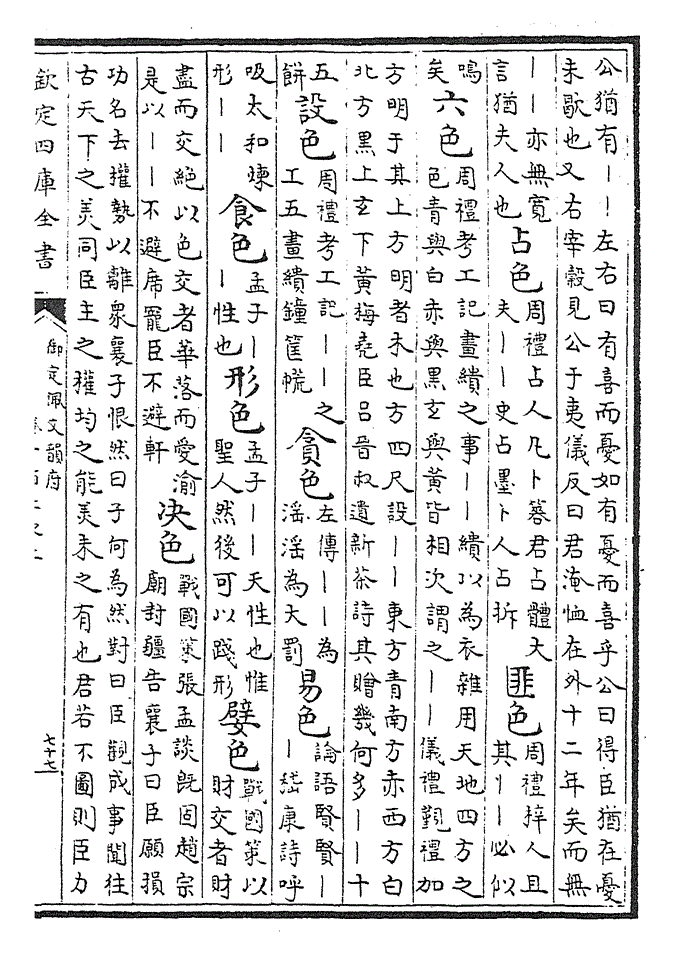 公猶有丨丨左右曰有喜而憂如有憂而喜乎公曰得臣猶在憂
未歇也又右宰榖見公于夷儀反曰君淹恤在外十二年矣而無
丨丨亦無寬
言猶夫人也
占色
周禮占人凡卜簭君占體大
夫丨丨史占墨卜人占拆
匪色
周禮梓人且
其丨丨必似
鳴
矣
六色
周禮考工記畫繢之事丨丨繢以為衣雜用天地四方之
色青與白赤與黑玄與黃皆相次謂之丨丨儀禮覲禮加
方明于其上方明者木也方四尺設丨丨東方青南方赤西方白
北方黑上玄下黃梅堯臣呂晉叔遺新茶詩其贈幾何多丨丨十
五
餅
設色
周禮考工記丨丨之
工五畫繢鐘筐㡛
貪色
左傳丨丨為
淫淫為大罰
易色
論語賢賢丨
丨嵇康詩呼
吸太和煉
形丨丨
食色
孟子丨
丨性也
形色
孟子丨丨天性也惟
聖人然後可以踐形
嬖色
戰國策以
財交者財
盡而交絕以色交者華落而愛渝
是以丨丨不避席寵臣不避軒
決色
戰國策張孟談既固趙宗
廟封疆告襄子曰臣願損
功名去權勢以離衆襄子恨然曰子何為然對曰臣觀成事聞往
古天下之美同臣主之權均之能美未之有也君若不圖則臣力
欽定四庫全書
御定佩文韻府
七十七